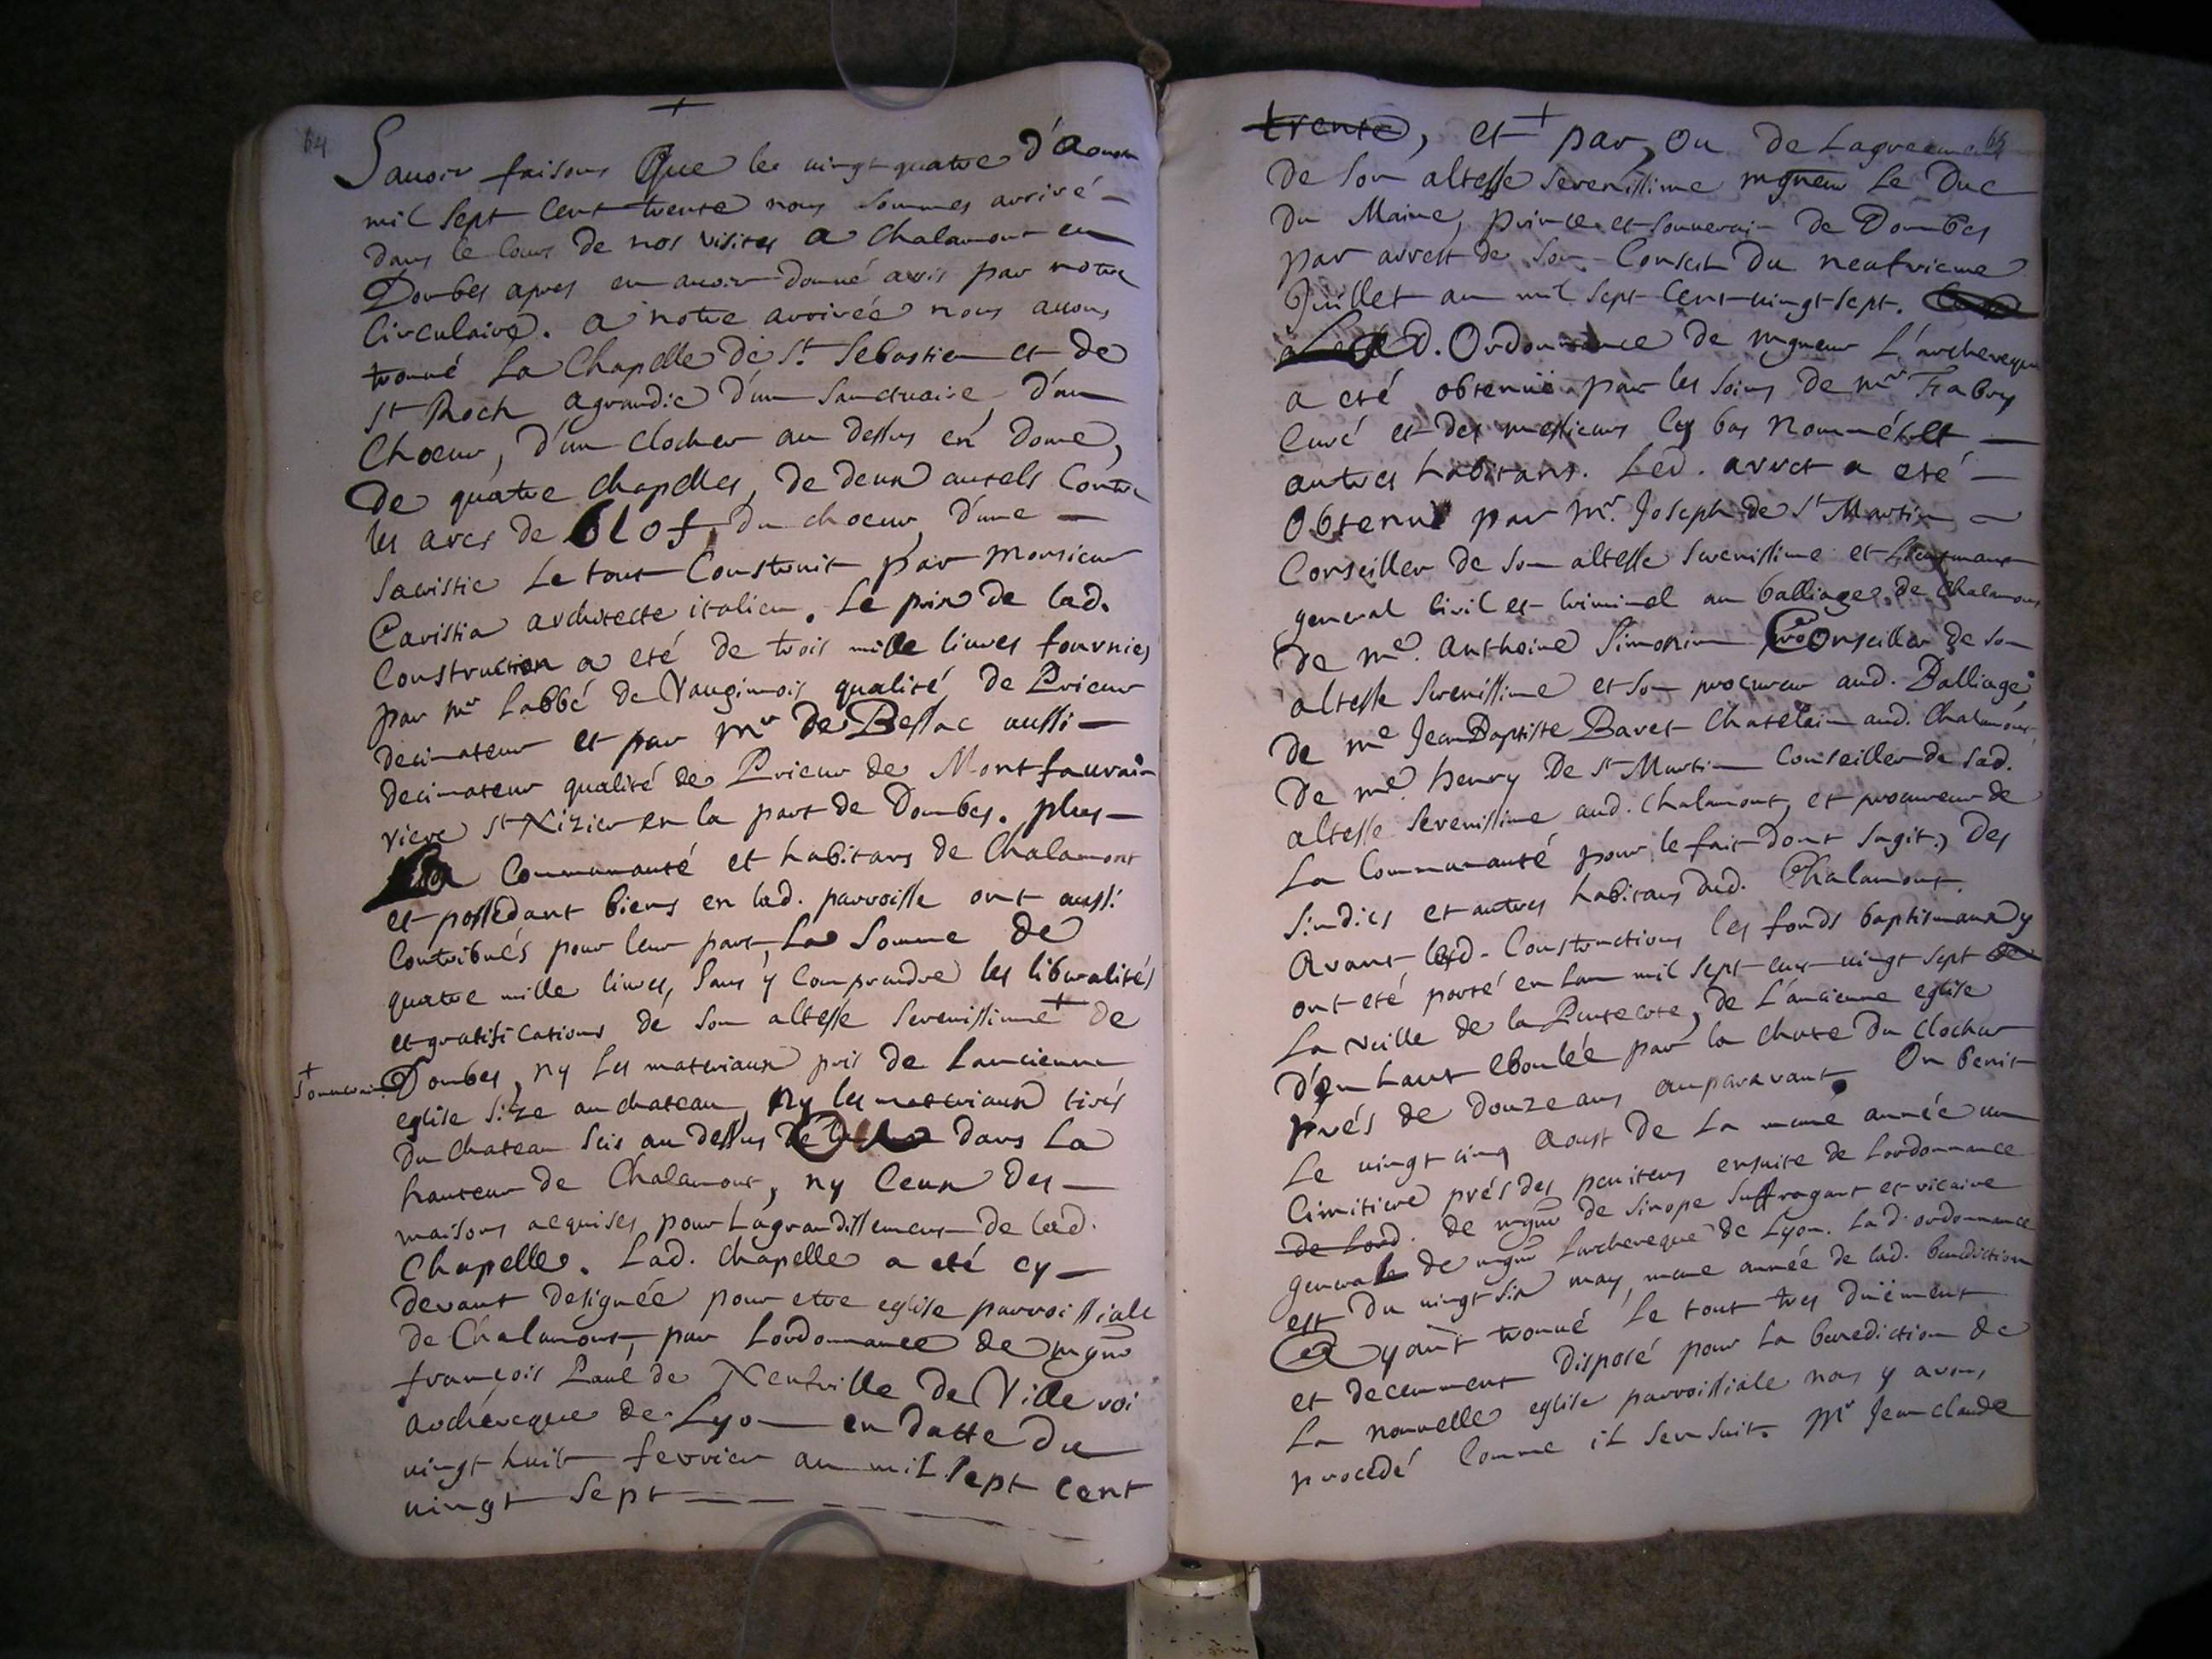 64
+
Sauoir faisons Que le uingt quatre d'Aoust
mil sept cent trente nous sommes arrivé
dans le cours de nos visites a Chalamont en
Dombes apres en auoir donné avis par notre
Circulaire. a notre arrivée nous auons
trouué La Chapelle de St. Sebastien et de
St Roch agrandie d'un Sanctuaire, d'un
Choeur, d'un clocher au dessus en dome,
De quatre chapelles, de deux autels Contre
les arcs de du choeur, d'une
Sacristie Le tout Construit par Monsieur
Caristia architecte italien. Le prix de lad.
Construction a eté de trois mille liures fournies
par mr Labbé de Vauginois qualité de Prieur
decimateur et par Mr de Bessac aussi
decimateur qualité de Prieur de Montfaurain
viere St Nizier en la part de Dombes. plus
La Communauté et habitans de Chalamont
et possedant biens en lad. parroisse ont aussi
Contribués pour leur part, La Somme de
quatre mille liures, Sans y Comprendre les liberalités
et gratifications de Son altesse Serenissime + de
+ Souuerain Dombes, ny Les materiaux pris de Lancienne
eglise Size au chateau, ny les materiaux tirés
Du chateau Scis au dessus dans La
hauteur de Chalamont, ny Ceux des
maisons acquises pour Lagrandissement de lad.
Chapelle. Lad. chapelle a eté cy
devant designée pour etre eglise parroissiale
de Chalamont, par Lordonnance de mgnr
françois Paul de Neufville De Villeroi
archeveque de Lyon en datte du
uingt huit fevrier an mil Sept Cent
uingt Sept
65
trente, et + par, ou de Lagreement
De Son altesse Serenissime mgneur Le Duc
Du Maine, prince et Souuerain de Dombes
par arrest de Son Conseil Du neufvieme
Juillet an mil Sept Cent uingt Sept.
Lad. Ordonnance de mgneur L'archeveque
a eté obtenüe par les Soins de mr Fabry
Curé et des messieurs Cy bas Nommés et
autres habitans. Led. arret a eté
Obtenu par Mr. Joseph de St Martin
Conseiller de Son altesse Serenissime et Lieutenant
general Civil et Criminel au balliage de Chalamont
De me. anthoine Simonin Conseiller de Son
altesse Serenissime et Son procureur aud. Balliage
de me Jean Baptiste Bavet Chatelain aud. Chalamont,
De me. henry De St Martin Conseiller de Sad.
altesse Serenissime aud. Chalamont, et procureur de
La Communauté pour le fait dont Sagit, Des
Sindics et autres habitans dud. Chalamont.
Avant lesd. Constructions les fonds baptismaux y
ont eté porté en Lan mil Sept cens uingt Sept
La veille de la Pentecote, de L'ancienne eglise
d'en haut eboulée par la chute du clocher
prés de douze ans auparavant. On benit
Le uingt cinq aoust de La meme année un
Cimitiere prés des penitens ensuite de Lordonnance
de Lord. de mgnr de Sinope Suffragant et vicaire
general de mgnr Larcheveque de Lyon. Lad. ordonnance
est Du uingt Six may, meme année de lad. benediction
Ayant trouué Le tout tres duëment
et decemment disposé pour La benediction de
La nouvelle eglise parroissiale nous y avons
procedé Comme il Sen Suit. Mr Jean Claude